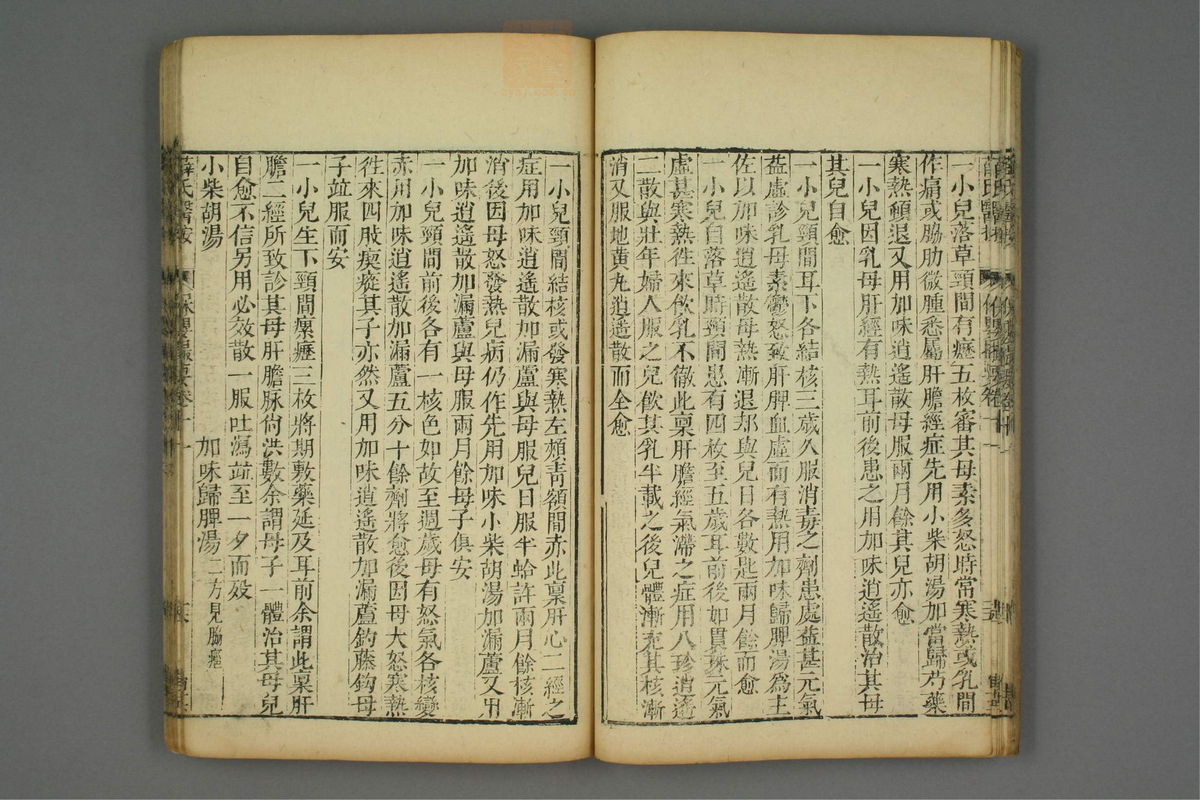 一小兒落草頸間有癧五枚審其母素多怒時常寒熱或乳間
作痛或脇肋微腫悉屬肝膽經症先用小柴胡湯加當歸芍藥
寒熱頓退又用加味逍遙散母服兩月餘其兒亦愈
一小兒因乳母肝經有熱耳前後患之用加味逍遙散治其母
其兒自愈
一小兒頸間耳下各結核三歲久服消毒之劑患處益甚元氣
益虛診乳母素鬱怒致肝脾血虛而有熱用加味歸脾湯爲主
佐以加味逍遙散母熱漸退却與兒日各數匙兩月餘而愈
一小兒自落草時頸間患有四枚至五歲耳前後如貫珠元氣
虛甚寒熱徃來飲乳不徹此稟肝膽經氣滯之症用八珍逍遙
二散與壯年婦人服之兒飲其乳半載之後兒體漸充其核漸
消又服地黄丸逍遙散而全愈
一小兒頸間結核或發寒熱左頰青額間赤此稟肝心二經之
症用加味逍遙散加漏蘆與母服兒日服半蛤許兩月餘核漸
消後因母怒發熱兒病仍作先用加味小柴胡湯加漏蘆又用
加味逍遙散加漏蘆與母服兩月餘母子俱安
一小兒頸間前後各有一核色如故至週歲母有怒氣各核變
赤用加味逍遙散加漏蘆五分十餘劑將愈後因母大怒寒熱
徃來四肢瘈瘲其子亦然又用加味逍遙散加漏蘆鈎藤鈎母
子竝服而安
一小兒生下頸間瘰癧三枚將期敷藥延及耳前余謂此稟肝
膽二經所致診其母肝膽脉尚洪數余謂母子一體治其母兒
自愈不信另用必效散一服吐瀉竝至一夕而殁
小柴胡湯 加味歸脾湯二方見胸癰
薛氏醫按 保嬰撮要卷十一